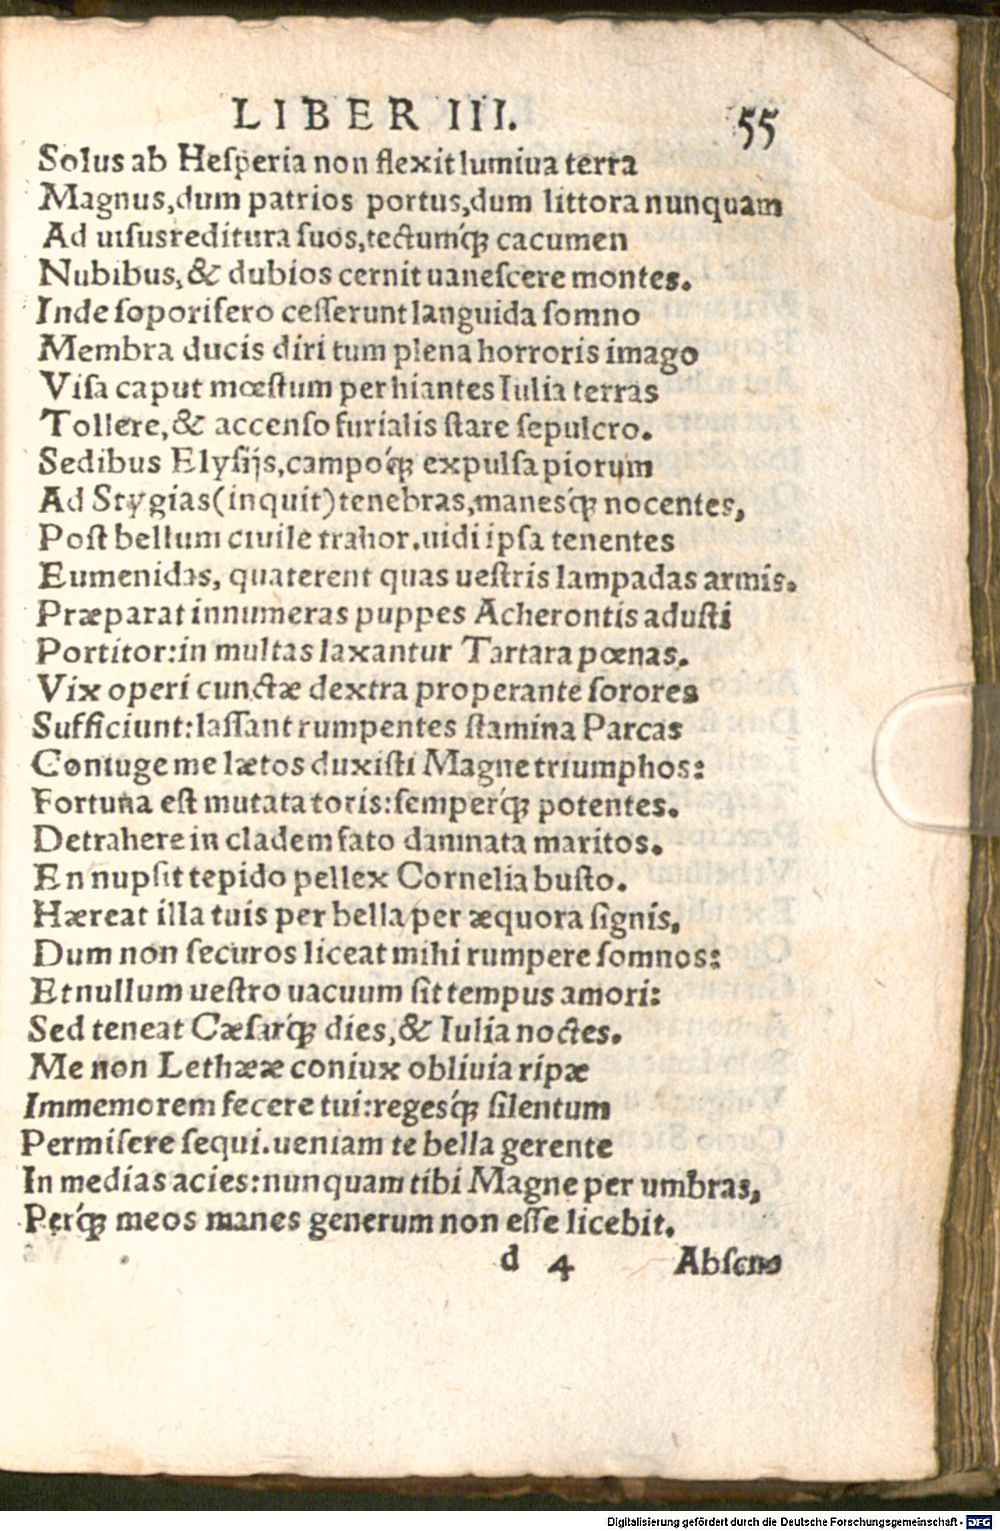 LIBER III. 55
Solus ab Heſperia non flexit lumiua terra
Magnus,dum patrios portus,dum littora nunquam
Ad uiſus reditura ſuos,tectumq́ꝫ cacumen
Nubibus,& dubios cernit uaneſcere montes.
Inde ſoporifero ceſſerunt languida ſomno
Membra ducis diri tum plena horroris imago
Viſa caput mœſtum per hiantes Iulia terras
Tollere,& accenſo furialis ſtare ſepulcro.
Sedibus Elyſijs,campoq́ꝫ expulſa piorum
Ad Stygias(inquit)tenebras,manesq́ꝫ nocentes,
Poſt bellum ciuile trahor.uidi ipſa tenentes
Eumenidas, quaterent quas ueſtris lampadas armis.
Præparat innumeras puppes Acherontis aduſti
Portitor:in multas laxantur Tartara pœnas.
Vix operi cunctæ dextra properante ſorores
Sufficiunt:laſſant rumpentes ſtamina Parcas
Coniuge me lætos duxiſti Magne triumphos:
Fortuna eſt mutata toris:ſemperq́ꝫ potentes.
Detrahere in cladem fato damnata maritos.
En nupſit tepido pellex Cornelia buſto.
Hæreat illa tuis per bella per æquora ſignis,
Dum non ſecuros liceat mihi rumpere ſomnos:
Et nullum ueſtro uacuum ſit tempus amori:
Sed teneat Cæſarq́ꝫ dies,& Iulia noctes.
Me non Lethææ coniux obliuia ripæ
Immemorem fecere tui:regesq́ꝫ ſilentum
Permiſere ſequi.ueniam te bella gerente
In medias acies:nunquam tibi Magne per umbras,
Perq́ꝫ meos manes generum non eſſe licebit.
d 4 Abſcns
Digitalisierung gefördert durch die Deutsche Forschungsgemeinschaft - DFG